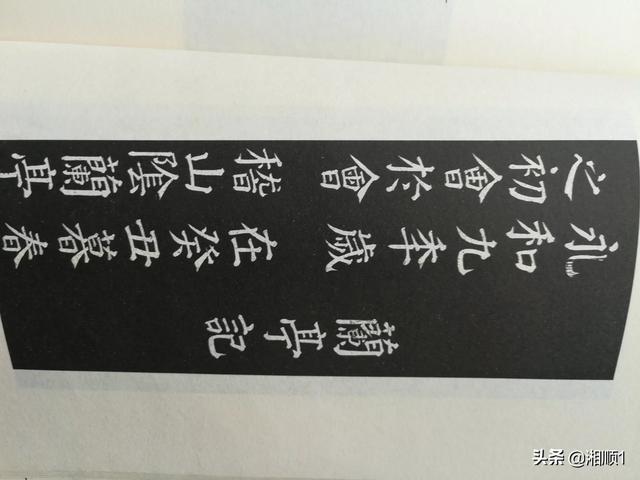 蘭亭記
永和九秊歲在癸丑暮春
之初會於會稽山陰蘭亭
头条 @湘顺1